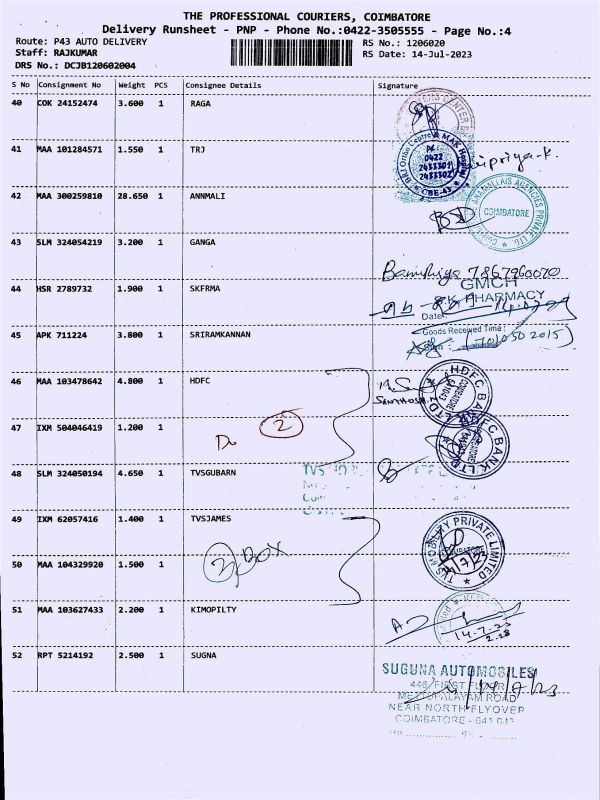 THE PROFESSIONAL COURIERS, COIMBATORE
Delivery Runsheet - PNP - Phone No.:0422-3505555 - Page No.:4
Route: P43 AUTO DELIVERY RS No.: 1206020
Staff: RAJKUMAR RS Date: 14-Jul-2023
DRS No.: DCJB120602004
S No Consignment No Weight PCS Consignee Details Signature
40 COK 24152474 3.600 1 RAGA
41 MAA 101284571 1.550 1 TRJ
Ortho Centre & MAK Hospital
PH:
0422
2433301
2433302
CBE-43
42 MAA 300259810 28.650 1 ANNMALI
ANAMALLAIS AGENCIES PRIVATE LTD.
COIMBATORE
43 SLM 324054219 3.200 1 GANGA
7867960070
44 HSR 2789732 1.900 1 SKFRMA
GMCH
PHARMACY
Date
45 APK 711224 3.800 1 SRIRAMKANNAN
Goods Received Time:
46 MAA 103478642 4.800 1 HDFC
HDFC BANK LTD
47 IXM 504046419 1.200 1
2
HDFC BANK LTD
48 SLM 324050194 4.650 1 TVSGUBARN
TVS
49 IXM 62057416 1.400 1 TVSJAMES
TVS MOBILITY PRIVATE LIMITED
50 MAA 104329920 1.500 1
BOX
51 MAA 103627433 2.200 1 KIMOPILTY
14.7.23
2.28
52 RPT 5214192 2.500 1 SUGNA
SUGUNA AUTOMOBILES
446, FIRST FLOOR
METTUPALAYAM ROAD
NEAR NORTH FLYOVER
COIMBATORE - 641 043